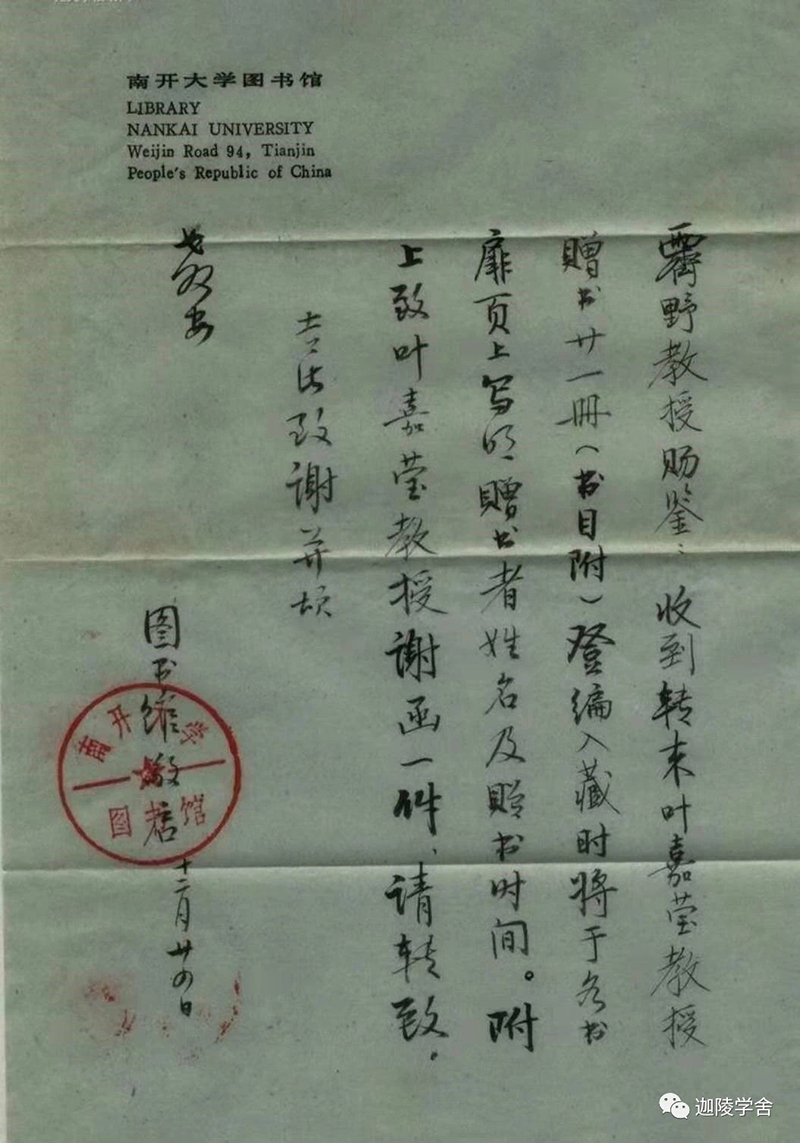 南开大学图书馆
LIBRARY
NANKAI UNIVERSITY
Weijin Road 94, Tianjin
People's Republic of China
霁野教授赐鉴：收到转来叶嘉莹教授
赠书廿一册（书目附）登编入藏时将于各书
扉页上写明赠书者姓名及赠书时间。附
上致叶嘉莹教授谢函一件、请转致。
专此致谢并颂
教安
图书馆敬启
十二月廿四日
南开大学
图书馆
迦陵学舍